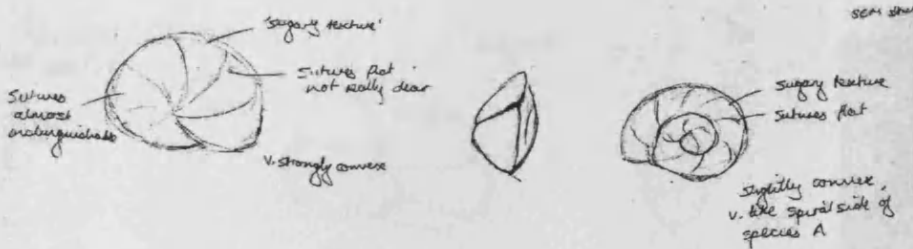 SEM
'sugary texture'
Sutures flat
not really clear
Sutures
almost
indistinguishable
v. strongly convex
sugary texture
sutures flat
slightly convex,
v. like spiral side of
species A